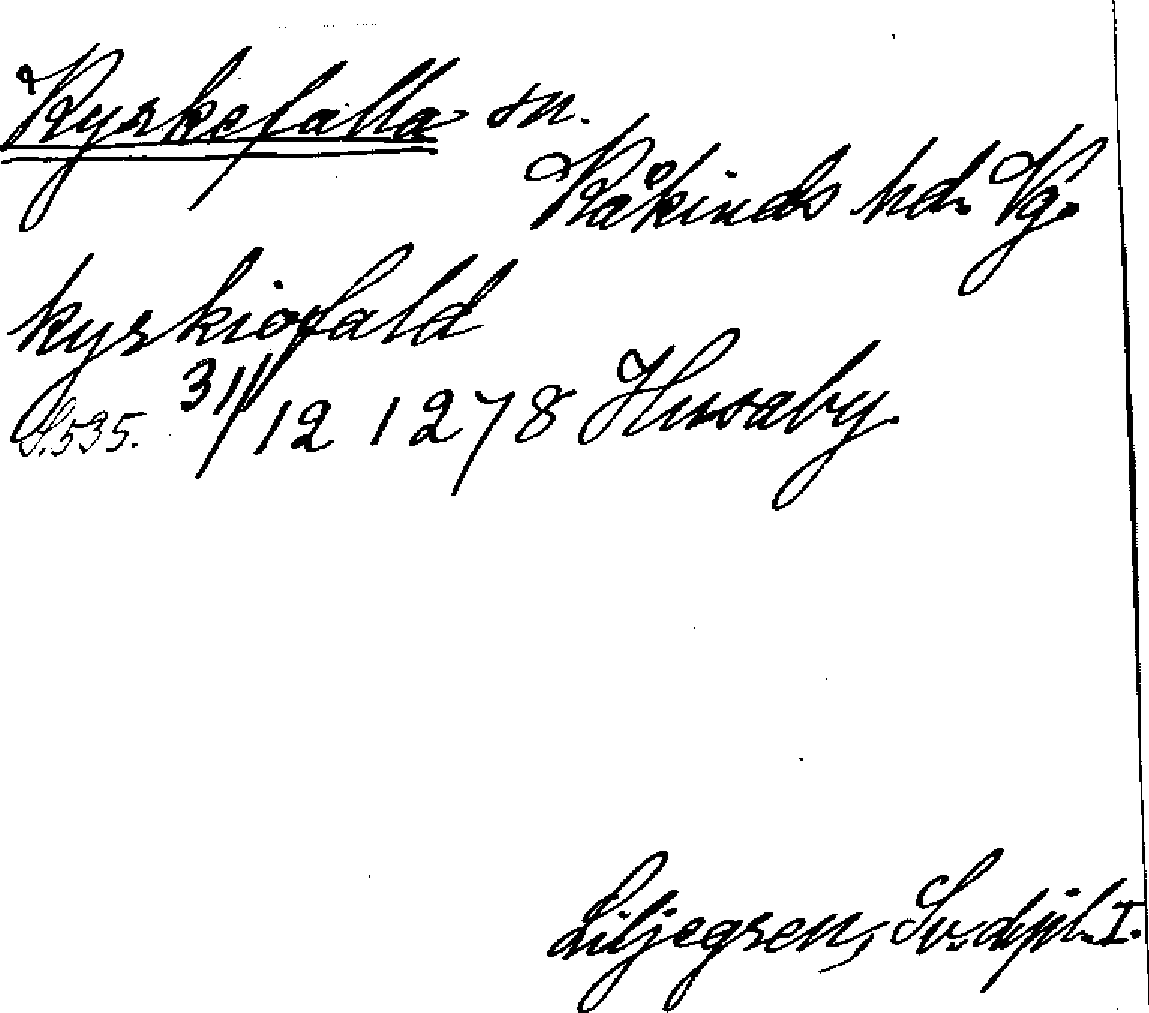 Kyrkefalla sn.
Kåkinds hd. Vg.
kyrkiofald
S. 535. 31/12 1278 Husaby
Liljegren, Sv. dipl. I.